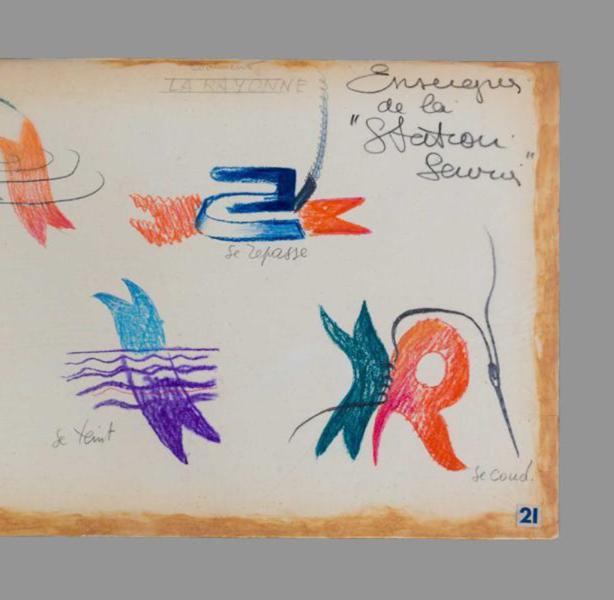 LA RAYONNE
Enseignes
de la
"Station
Service"
Se repasse
Se teint
Se coud.
21